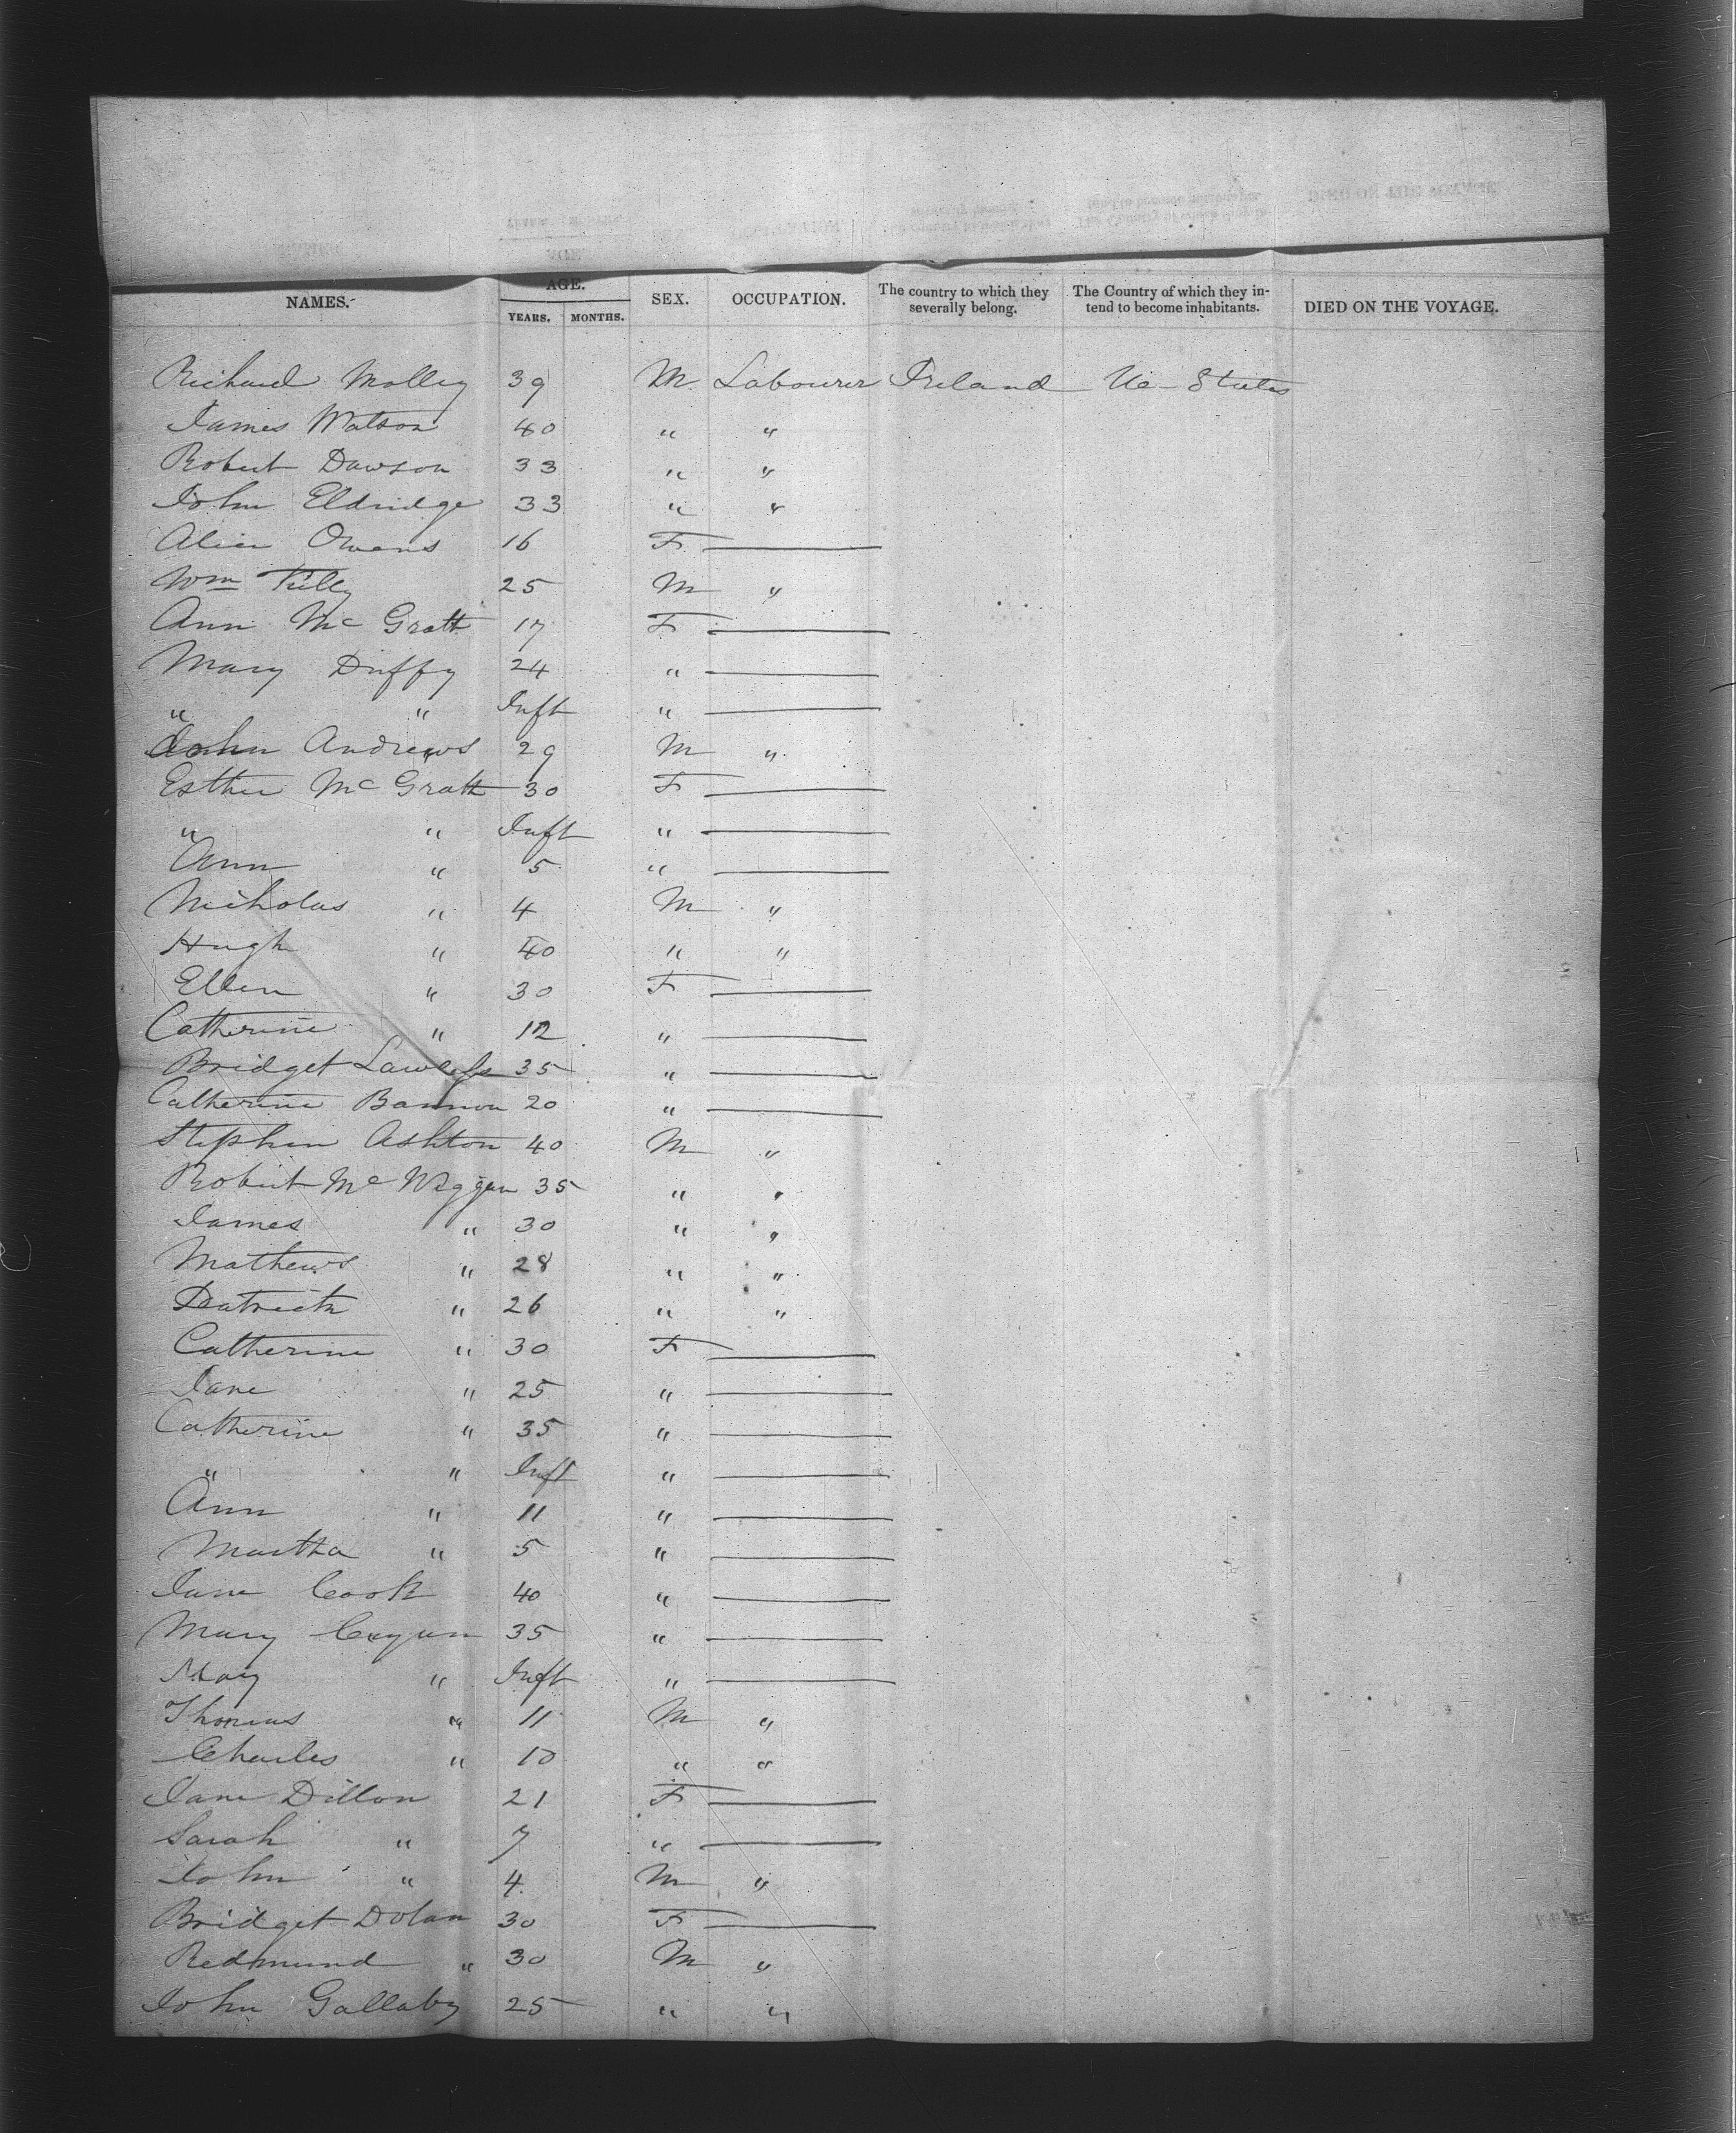 NAMES. AGE. YEARS. MONTHS. SEX. OCCUPATION. The country to which they severally belong. The Country of which they intend to become inhabitants. DIED ON THE VOYAGE.
Richard Molley 39 M Labourer Ireland Ue States
James Watson 40 " "
Robert Dawson 33 " "
John Eldridge 33 " "
Alice Owens 16 F —
Wm 25 M "
Ann Mc Grath 17 F —
Mary Duffy 24 " —
" " Inft " —
John Andrews 29 M "
Esther Mc Grath 30 F —
" " Inft " —
Ann " 5 " —
Nicholas " 4 M "
Hugh " 40 " "
Ellen " 30 F —
Catherine " 12 " —
Bridget Lawless 35 " —
Catherine Bannon 20 " —
Stephen Ashton 40 M "
Robert Mc Wiggan 35 " "
James " 30 " "
Mathews " 28 " "
Patrick " 26 " "
Catherine " 30 F —
Jane " 25 " —
Catherine " 35 " —
" " Inft " —
Ann " 11 " —
Martha " 5 " —
Jane Cook 40 " —
Mary 35 " —
May " Inft " —
Thomas " 11 M "
Charles " 10 " "
Jane Dillon 21 F —
Sarah " 7 " —
John " 4 M "
Bridget Dolan 30 F —
Redmund " 30 M "
John Gallaby 25 " "